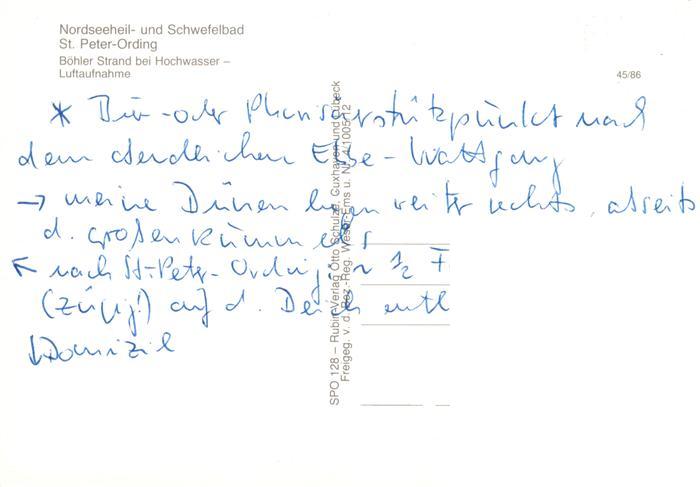 Nordseeheil- und Schwefelbad
St. Peter-Ording
Böhler Strand bei Hochwasser –
Luftaufnahme
45/86
* Bier- oder Pharisäerstützpunkt nach
dem abendlichen Ebbe-Wattgang
→ meine Dünen liegen weiter rechts, abseits
d. großen
↖ nach St. Peter-Ording: ~ 1/2
(zügig!) auf d. Deich entl
↓ Domizil
SPO 128 – Rubin-Verlag Otto Schulze, Cuxhaven und Lübeck
Freigeg. v. d. Bez.-Reg. Weser-Ems u. Nr.